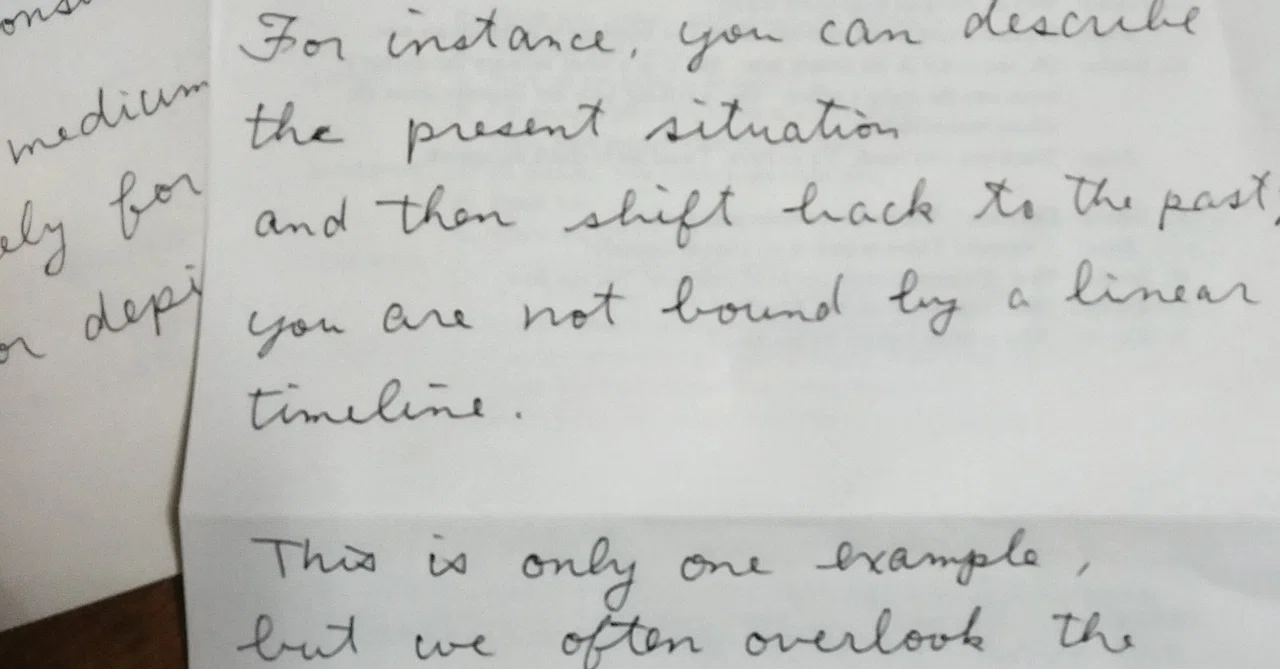 medium
for
For instance, you can describe
the present situation
and then shift back to the past,
you are not bound by a linear
timeline.
This is only one example,
but we often overlook the